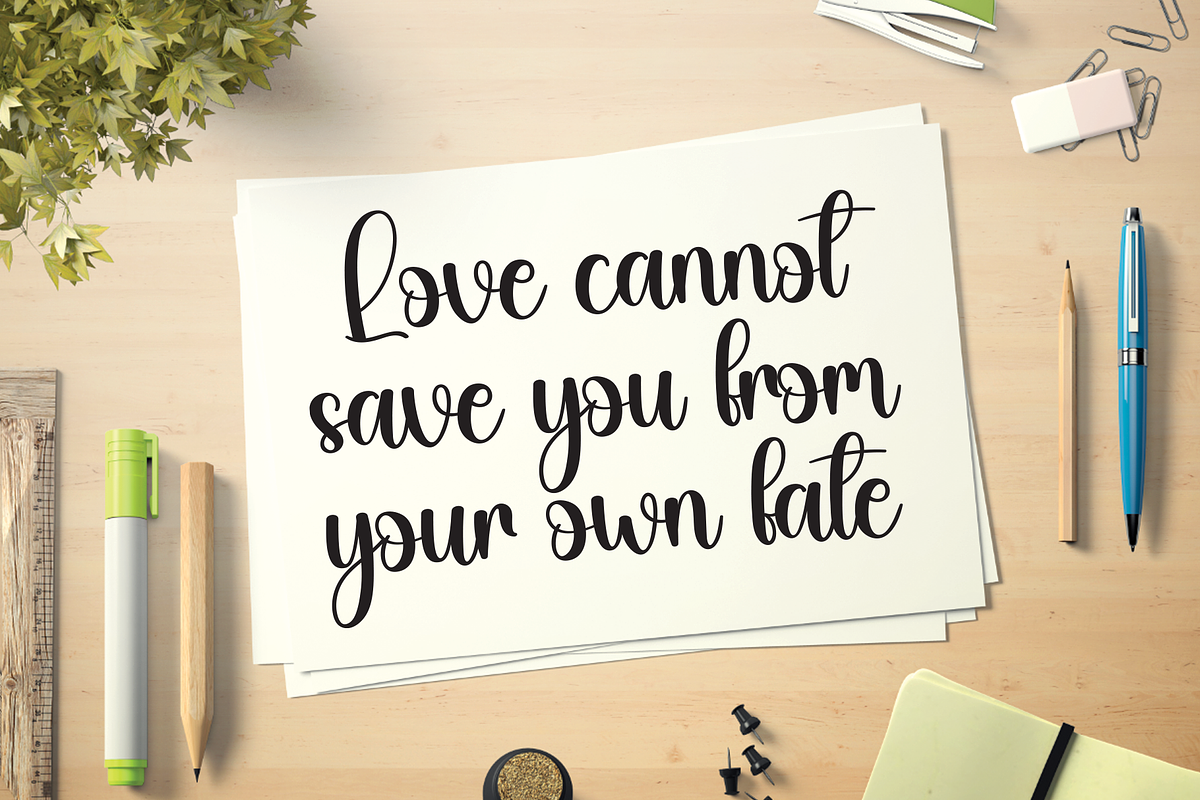 Love cannot
save you from
your own fate